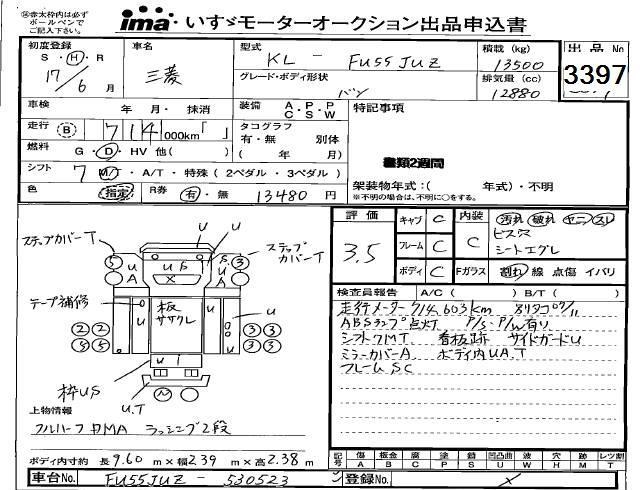 ※赤太枠内は必ずボールペンでご記入下さい。
ima いすゞモーターオークション出品申込書
初度登録 S・H・R 17/6月
車名 三菱
型式 KL - FU55JUZ
積載(kg) 13500
出品No. 3397
グレード・ボディ形状 バン
排気量(cc) 12880
車検 年 月・抹消
装備 A・P・P C・S・W
特記事項
走行 B 714 000km「 」
タコグラフ 有・無 別体 ( 年 月)
書類2週間
燃料 G・D・HV 他( )
シフト 7 M/T・A/T・特殊(2ペダル・3ペダル)
架装物年式:( 年式)・不明
※不明の場合は、不明に○をする。
色 指定
R券 有・無 13480円
評価 3.5
キャブ C
フレーム C
ボディ C
内装 C
汚れ 破れ ヤニ・スレ
ビス穴
シートエグレ
Fガラス 割れ 線 点傷 イバリ
ステップカバーT
ステップカバーT
テープ補修
板ササクレ
枠US
U.T
検査員報告 A/C( ) B/T( )
走行メーター714,603km
ABSランプ点灯 P/S・P/W有り
シフト7MT 看板跡 サイドガードU
ミラーカバーA ボディ内UA.T
フレームSC
上物情報
フルハーフ
ラッシング2段
ボディ内寸約 長9.60m×幅2.39m×高2.38m
記号 傷A 板金B 腐食C 塗P 錆S 凹凸曲U 波W 穴H 汚M 跡T レツ割T
車台No. FU55JUZ-530523
登録No.